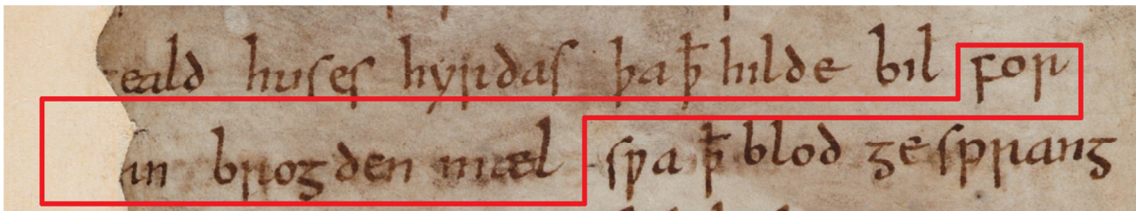 eald huses hyrdas þa ꝥ hilde bil for
in brogden mæl · spa ꝥ blod ge sprang